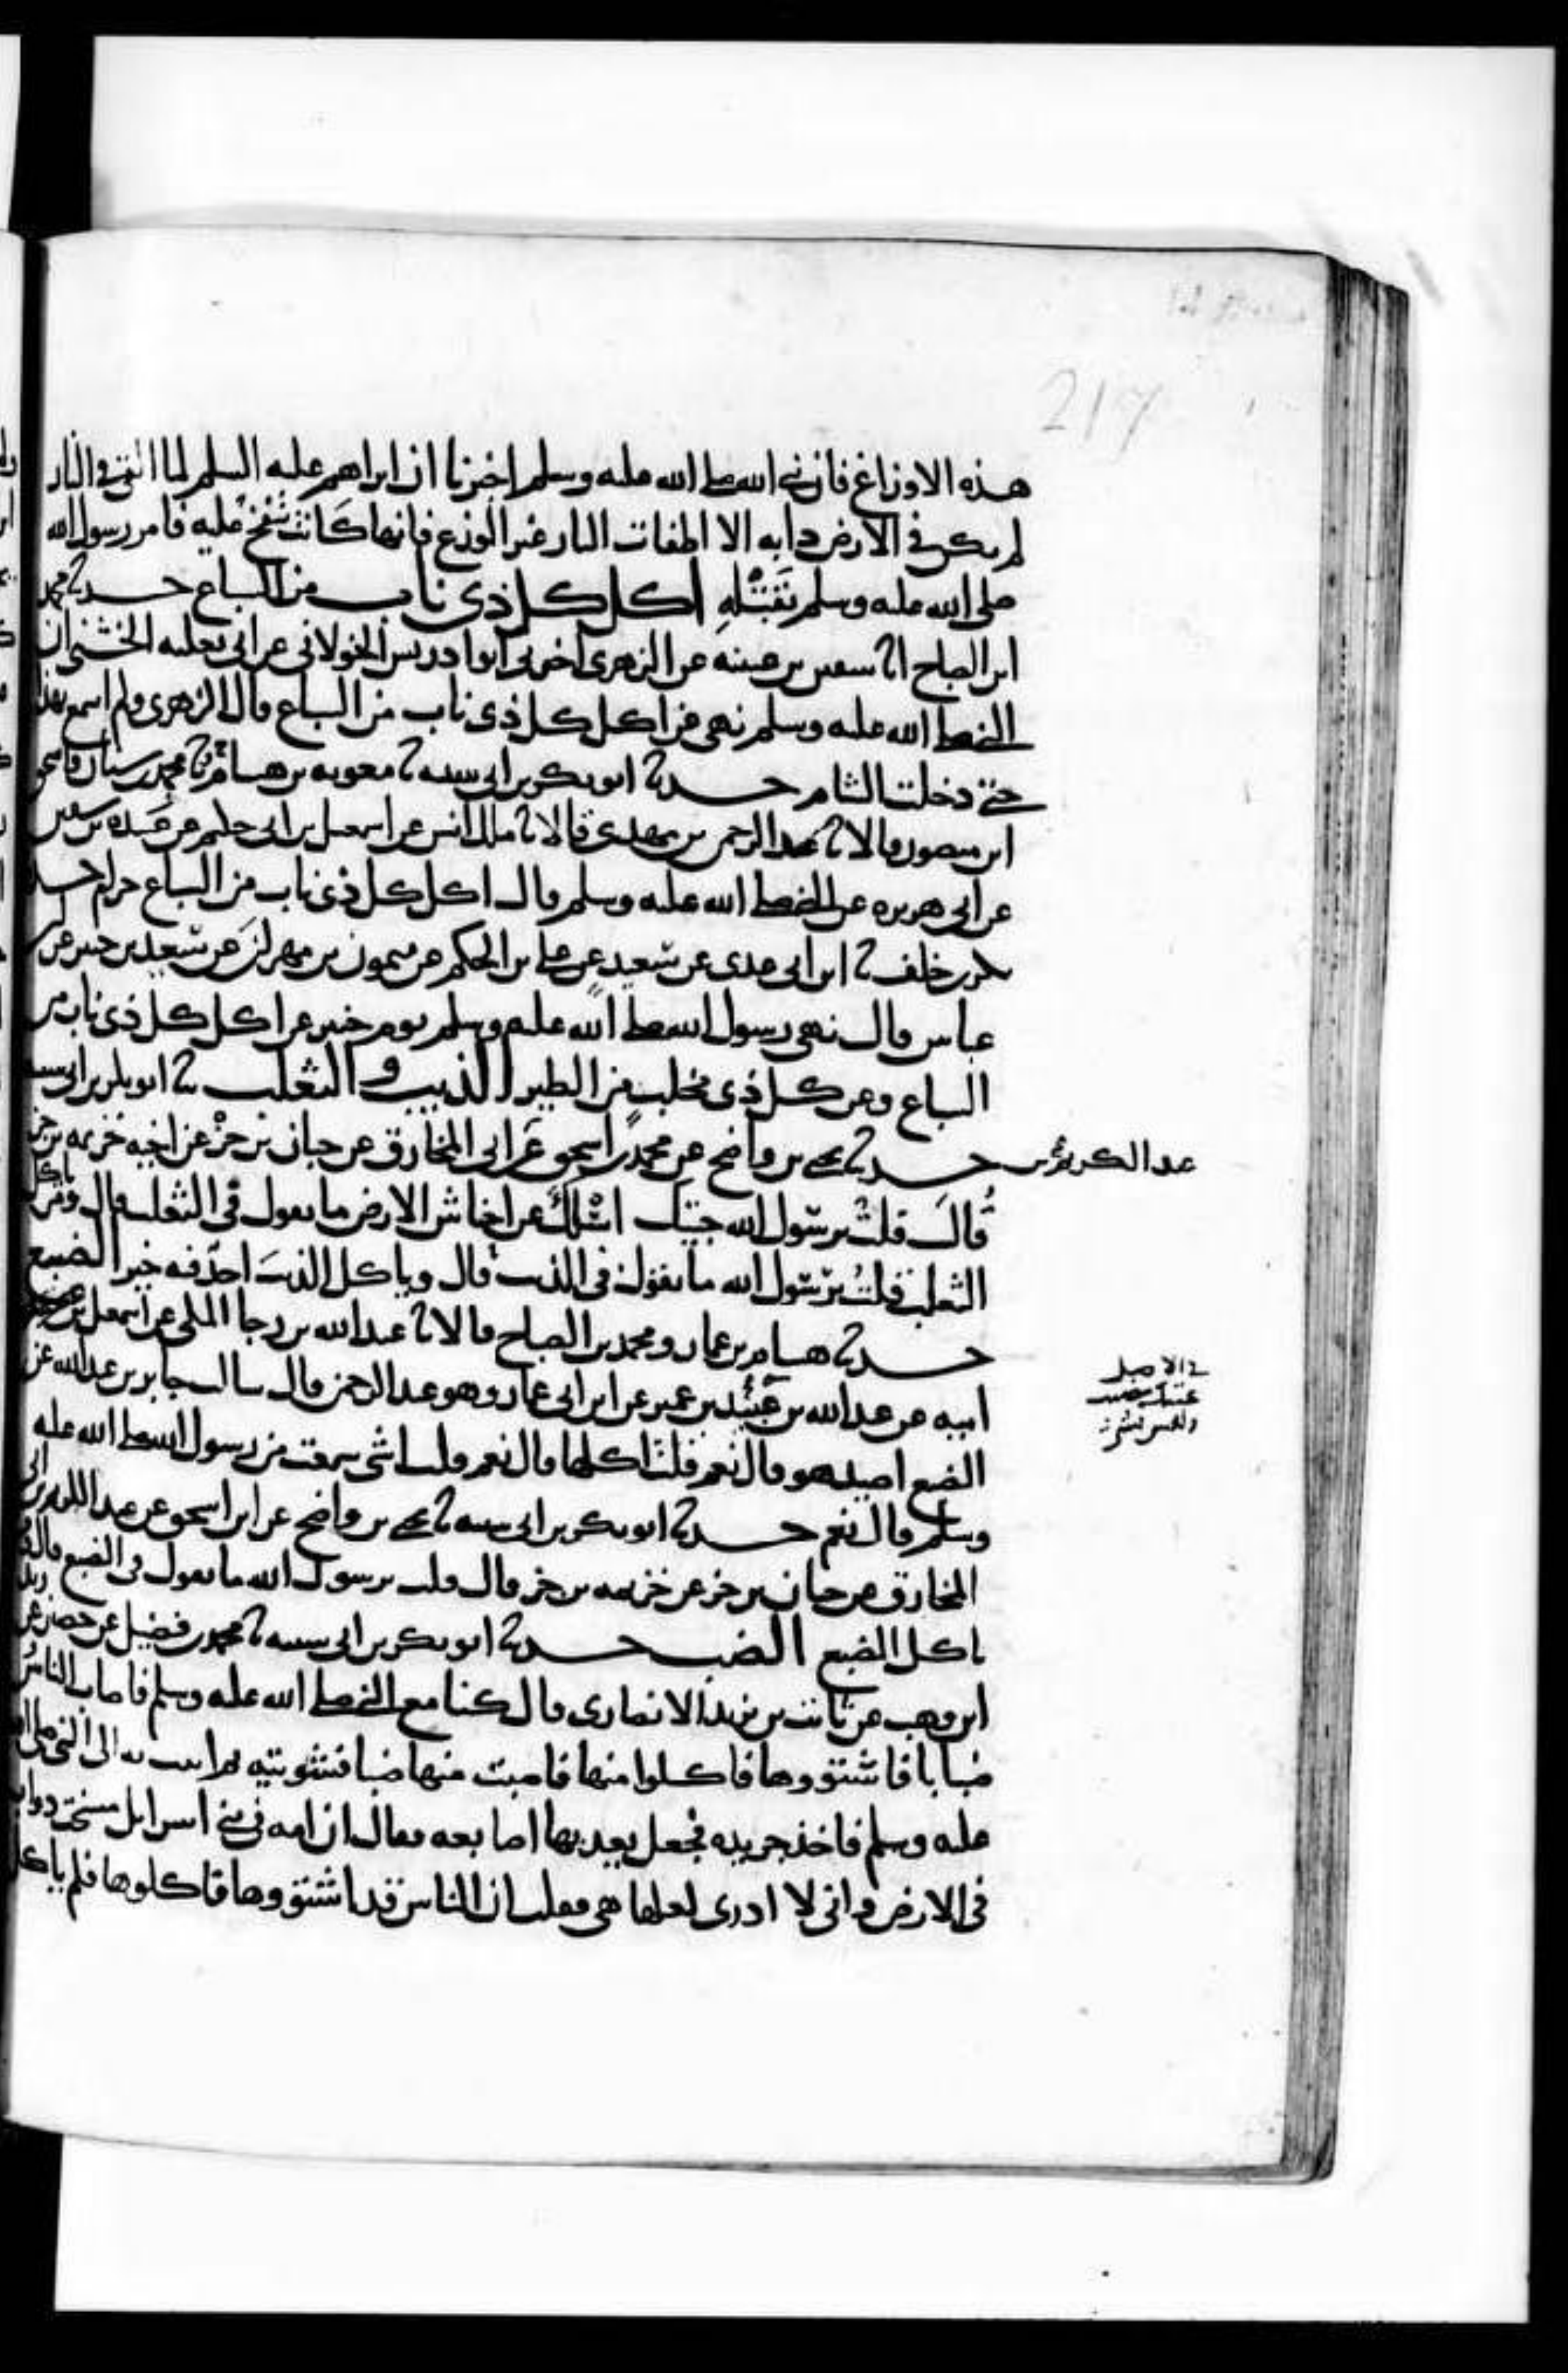 217
هذه الاوزاغ فان نبي الله صلى الله عليه وسلم اخبرنا ان ابراهيم عليه السلم لما القي في النار
لم يكن في الارض دابه الا اطفات النار غير الوزغ فانها كانت تنفخ عليه فامر رسول الله
صلى الله عليه وسلم بقتله اكل كل ذي ناب من السباع حدثنا محمد
ابن الصباح انا سفين بن عيينه عن الزهري اخبرني ابو ادريس الخولاني عن ابي ثعلبه الخشني ان
النبي صلى الله عليه وسلم نهى عن اكل كل ذي ناب من السباع قال الزهري ولم اسمع بهذا
حتى دخلت الشام حدثنا ابو بكر بن ابي شيبه نا معويه بن هشام نا محمد بن سنان واسحق
ابن منصور قالا نا عبد الرحمن بن مهدي قالا نا ملك انس عن اسمعيل بن ابي حكيم عن عبيده بن سفين
عن ابي هريره عن النبي صلى الله عليه وسلم قال اكل كل ذي ناب من السباع حرام حدثنا
بكر بن خلف نا ابن ابي عدي عن سعيد عن علي بن الحكم عن ميمون بن مهران عن سعيد بن جبير عن ابن
عباس قال نهى رسول الله صلى الله عليه وسلم يوم خيبر عن اكل كل ذي ناب من
السباع وعن كل ذي مخلب من الطير الذيب و الثعلب نا ابو بكر بن ابي شيبه
حدثنا يحيى بن واضح عن محمد بن اسحق عن ابي المخارق عن حبان بن جزء عن اخيه خزيمه بن جزء
عبد الكريم بن
قال قلت يرسول الله جيتك اسئلك عن احناش الارض ما تقول في الثعلب قال ومن ياكل
الثعلب قلت يرسول الله ما تقول في الذيب قال وياكل الذيب احد فيه خير الضبع
حدثنا هشام بن عمار ومحمد بن الصباح قالا نا عبد الله بن رجا المكي عن اسمعيل بن
ابيه عن عبد الله بن عبيد بن عمير عن ابن ابي عمار وهو عبد الرحمن قال سالت جابر بن عبد الله عن
في الاصل
الضبع اصيد هو قال نعم قلت اكلها قال نعم قلت اشي سمعت من رسول الله صلى الله عليه
وسلم قال نعم حدثنا ابو بكر بن ابي شيبه نا يحيى بن واضح عن ابن اسحق عن عبد الكريم بن ابي
المخارق عن حبان بن جزء عن خزيمه بن جزء قال قلت يرسول الله ما تقول في الضبع قال ومن
ياكل الضبع الضب حدثنا ابو بكر بن ابي شيبه نا محمد بن فضيل عن حصين عن زيد
ابن وهب عن ثابت بن يزيد الانصاري قال كنا مع النبي صلى الله عليه وسلم فاصاب الناس
ضبابا فاشتووها فاكلوا منها فاصبت منها ضبا فشويته ثم اتيت به الى النبي صلى الله
عليه وسلم فاخذ جريده فجعل يعد بها اصابعه فقال ان امه في بني اسرايل مسخت دواب
في الارض واني لا ادري لعلها هي فقلت ان الناس قد اشتووها فاكلوها فلم ياكل